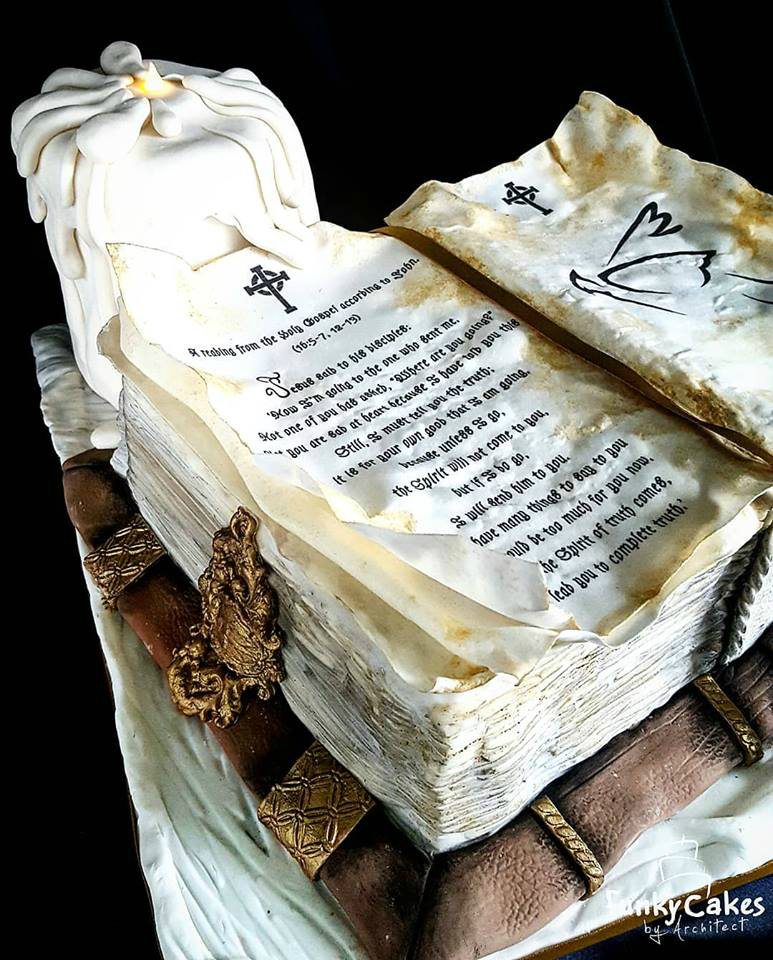 A reading from the Holy Gospel according to John.
(16:5-7. 12-13)
Jesus said to his disciples:
'Now I'm going to the one who sent me,
Not one of you has asked, 'Where are you going?'
you are sad at heart because I have told you this
Still, I must tell you the truth:
it is for your own good that I am going,
because unless I go,
the Spirit will not come to you,
but if I do go,
I will send him to you.
have many things to say to you
would be too much for you now.
the Spirit of truth comes,
lead you to complete truth.'
Funky Cakes
by Architect